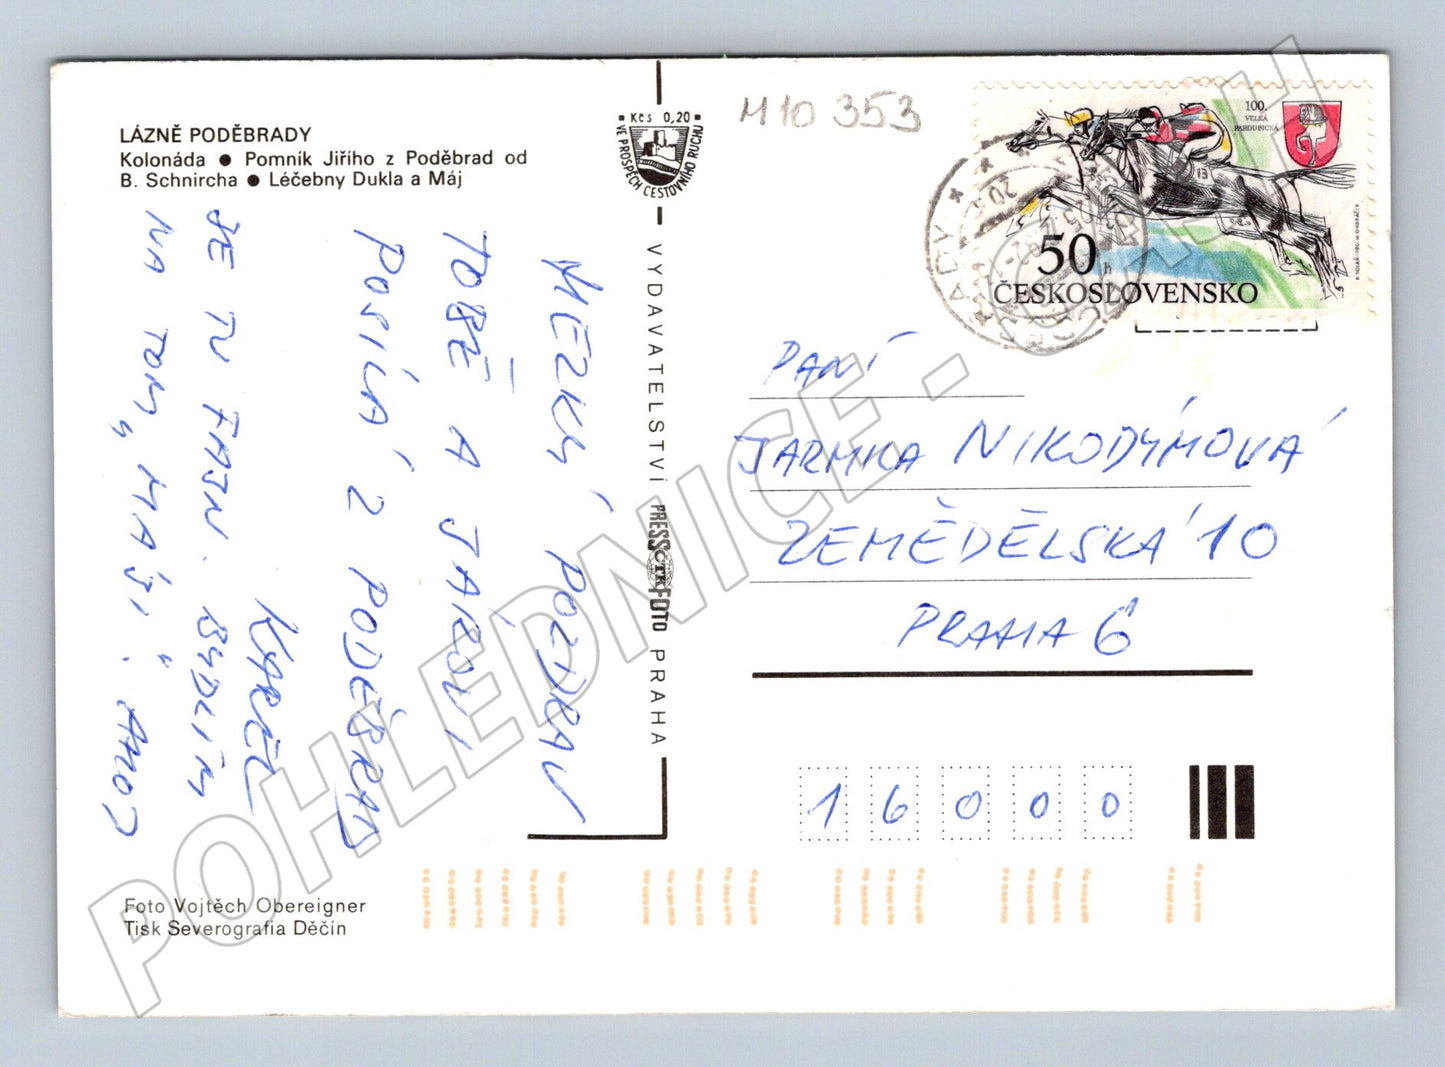 LÁZNĚ PODĚBRADY
Kolonáda ● Pomník Jiřího z Poděbrad od
B. Schnircha ● Léčebny Dukla a Máj
HEZKÝ POZDRAV
TOBĚ A JARDOVI
POSÍLÁ Z PODĚBRAD
KAREL
JE TU FAJN. BYDLÍM
NA TOM „MÁJI“. AHOJ
Foto Vojtěch Obereigner
Tisk Severografia Děčín
Kčs 0,20
VE PROSPĚCH CESTOVNÍHO RUCHU
VYDAVATELSTVÍ PRESSFOTO PRAHA
ČTK
M10 353
100.
VELKÁ
PARDUBICKÁ
13
50 h
ČESKOSLOVENSKO
PANÍ
JARMILA NIKODÝMOVÁ
ZEMĚDĚLSKÁ 10
PRAHA 6
16000
POHLEDNICE - O.CZ